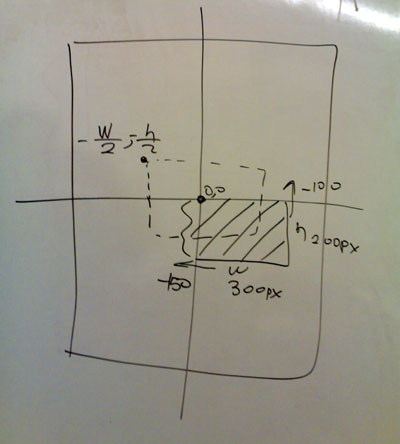 -W/2; -h/2
0,0
-100
h 200px
-150
w
300px